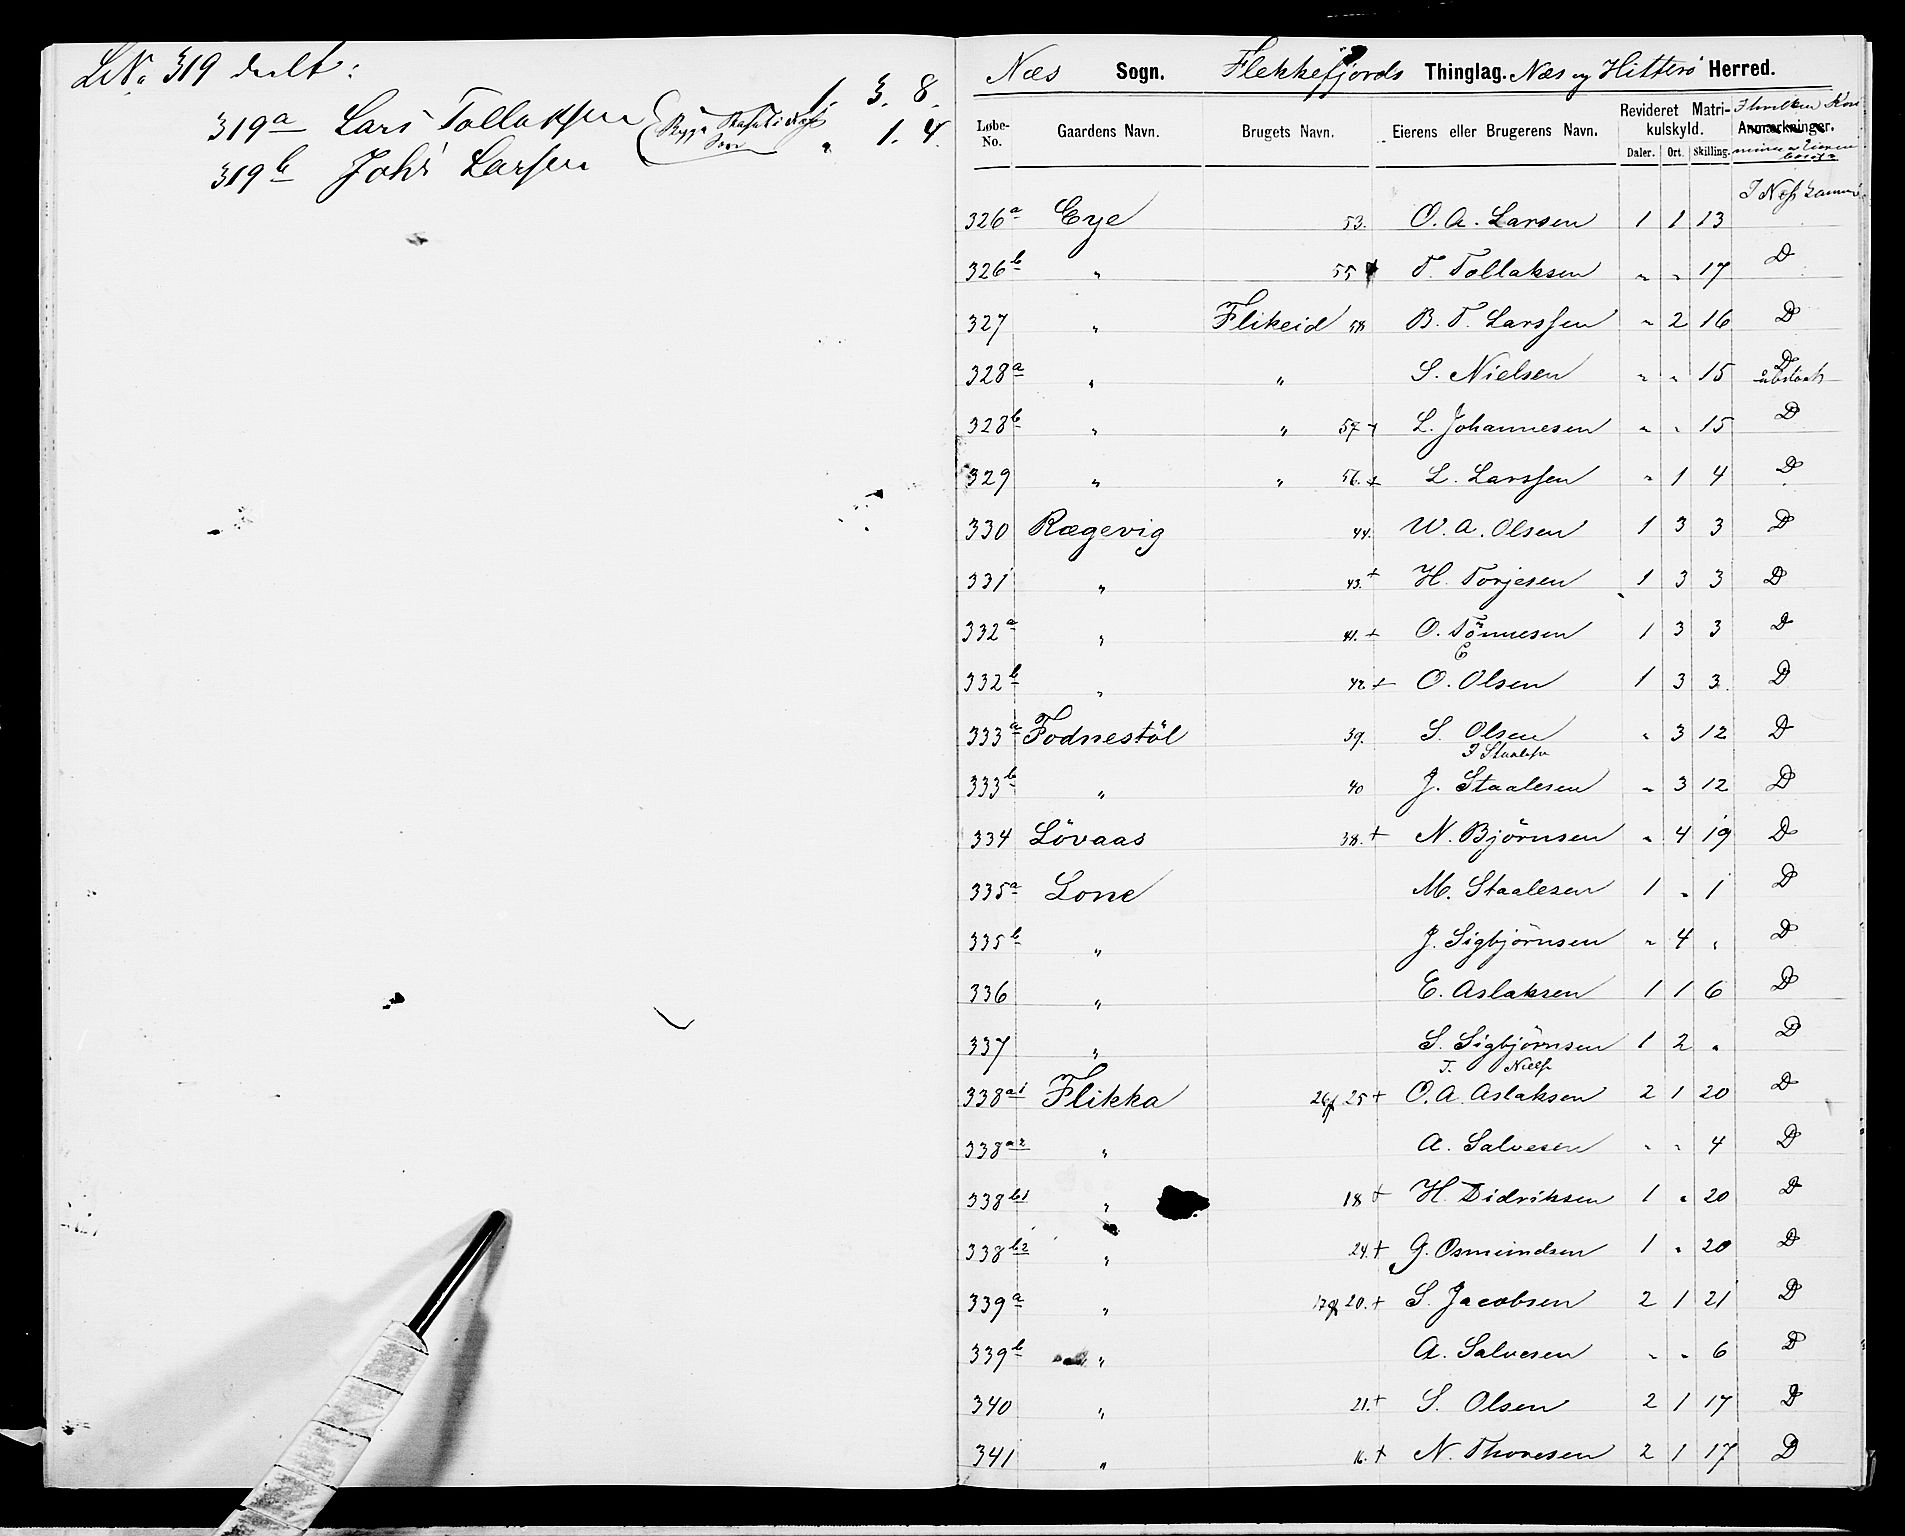 LNo 319 deelt:
319a Lars Tollaksen 1. 3. 8.
319b Johs Larsen " 1. 4.
Næs Sogn. Flekkefjords Thinglag. Næs og Hitterø Herred.
Løbe-No. Gaardens Navn. Brugets Navn. Eierens eller Brugerens Navn. Revideret Matrikulskyld. Anmærkninger.
Daler. Ort. Skilling.
326a Eye 53. O. A. Larsen 1 1 13
326b " 55 T. Tollaksen " " 17 D
327 " Flikeid 58 B. T. Larssen " 2 16 D
328a " " S. Nielsen " " 15 D
328b " " 57 + L. Johannesen " " 15 D
329 " " 56. + L. Larssen " 1 4 D
330 Rægevig 44. W. A. Olsen 1 3 3 D
331 " 43. + H. Torjesen 1 3 3 D
332a " 41. + O. Tönnesen 1 3 3 D
332b " 42 + O. Olsen 1 3 3. D
333a Fodnestöl 39. S. Olsen " 3 12 D
333b " 40 J. Staalesen " 3 12 D
334 Lövaas 38. + N. Björnsen " 4 19 D
335a Lone M. Staalesen 1 " 1 D
335b " J. Sigbjörnsen " 4 " D
336 " E. Aslaksen 1 1 6 D
337 " S. Sigbjörnsen 1 2 " D
T. Niels
338a1 Flikka 26 25 + O. A. Aslaksen 2 1 20 D
338a2 " A. Salvesen " " 4 D
338b1 " 18 + H. Didriksen 1 " 20 D
338b2 " 24. + G. Osmundsen 1 " 20 D
339a " 17 20. + S. Jacobsen 2 1 21 D
339b " A. Salvesen " " 6 D
340 " 21. + S. Olsen 2 1 17 D
341 " 16. + N. Thoresen 2 1 17 D